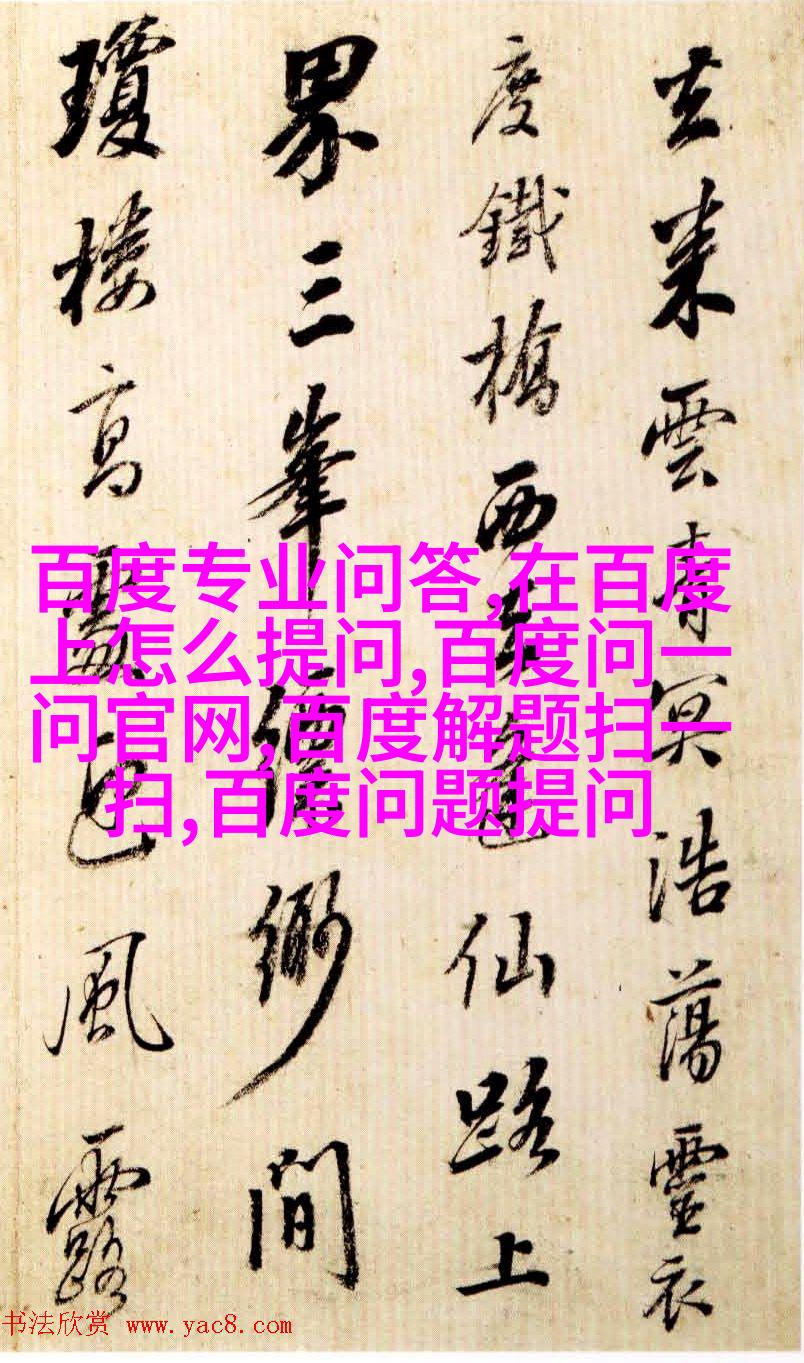 去来雲青冥浩蕩靈衣
度鐵橋西仙路上
界三峯縹緲間
瓊樓高風露
百度专业问答,在百度
上怎么提问,百度问一
问官网,百度解题扫一
扫,百度问题提问
书法欣赏 www.yac8.com